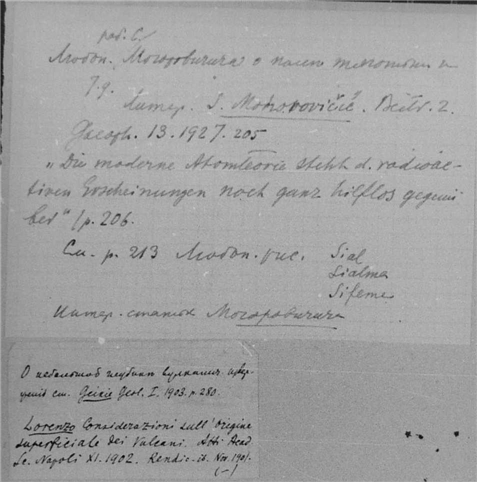 Любоп. Могоровичича о
Литер. S. Mohorovičić. Beitr. z.
Geoph. 13. 1927. 205
„Die moderne Atomteorie steht d. radioac-
tiven Erscheinungen noch ganz hilflos gegenü-
ber“ (p. 206.
См. p. 213 Любоп. рис. Sial
Sialma
Sifema
Интер. статья Могоровичича
О небольшой глубине вулканич.
см. Geikie Geol. I. 1903. p. 280.
Lorenzo Considerazioni sull'Origine
superficiale dei Vulcani. Atti Acad
Sc. Napoli XI. 1902. Rendic. it. Nov. 1901.
(–)